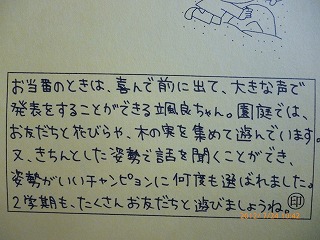 お当番のときは、喜んで前に出て、大きな声で
発表をすることができる颯良ちゃん。園庭では、
お友だちと花びらや、木の実を集めて遊んでいます。
又、きちんとした姿勢で話を聞くことができ、
姿勢がいいチャンピョンに何度も選ばれました。
2学期も、たくさんお友だちと遊びましょうね。㊞